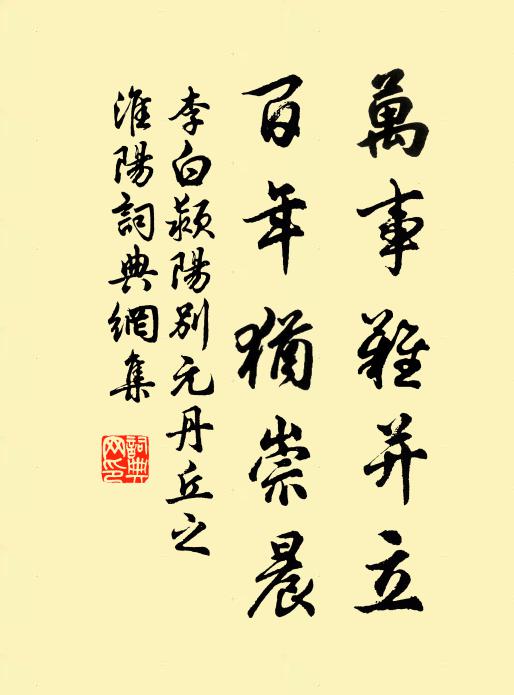 萬事難并立
百年猶崇晨
李白潁陽別元丹丘之
淮陽詞典網集
詞典网印